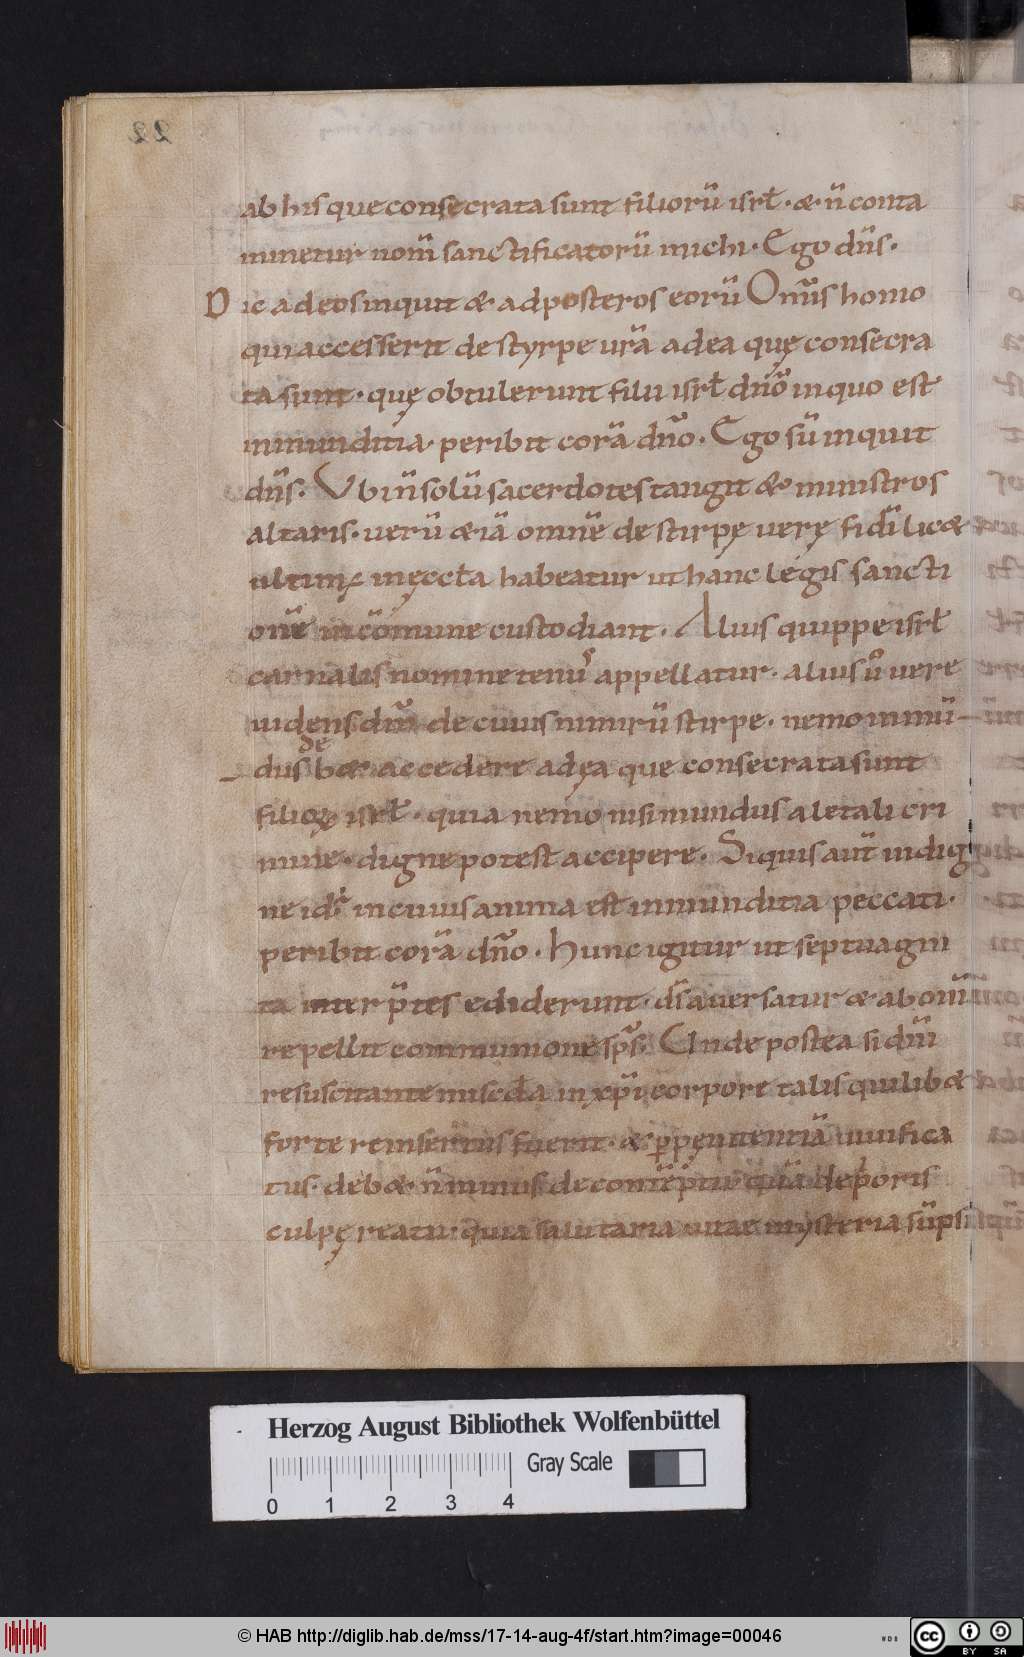 22
ab his que consecrata sunt filiorū isrƚ · & n̄ conta
minetur nom̄ sanctificatorū michi · Ego dn̄s ·
Dic ad eos inquit & ad posteros eorū Om̄is homo
qui accesserit de styrpe urā ad ea quę consecra
ta sunt · quę obtulerunt filii isrƚ dn̄o in quo est
inmunditia · peribit corā dn̄o · Ego sū inquit
dn̄s · Vbi n̄ solū sacerdotes tangit & ministros
altaris · uerū & iā omnē de stirpe uerę fidi licæ
ultimę in ęccƚa habeatur ut hanc legis sancti
onē in cōmune custodiant · Alius quippe isrƚ
carnalis nomine tenus appellatur · alius ů uere
uidens dm̄ de cuius nimirū stirpe · nemo inmū
dus debæ accedere ad ea que consecrata sunt
filioꝝ isrƚ · quia nemo nisi mundus a letali cri
mine · digne potest accipere · Siquis aut̄ indig
ne id in cuius anima est inmunditia peccati ·
peribit corā dn̄o · Hunc igitur ut septuagin
ta inter p̄tes ediderunt · dn̄s auersatur & ab om̄i
repellit communione sp̄s · Unde postea si dn̄i
resuscitante miscd̄a in xp̄i corpore talis quilibæ
forte reinsertus fuerit · & ꝑ pęnitentiā uiuifica
tus · debæ n̄ minus de contēptu quā de prioris
culpę reatu · quia salutaria uitae mysteria sūpsit
Herzog August Bibliothek Wolfenbüttel
0 1 2 3 4 Gray Scale
© HAB http://diglib.hab.de/mss/17-14-aug-4f/start.htm?image=00046
WDB
cc BY SA